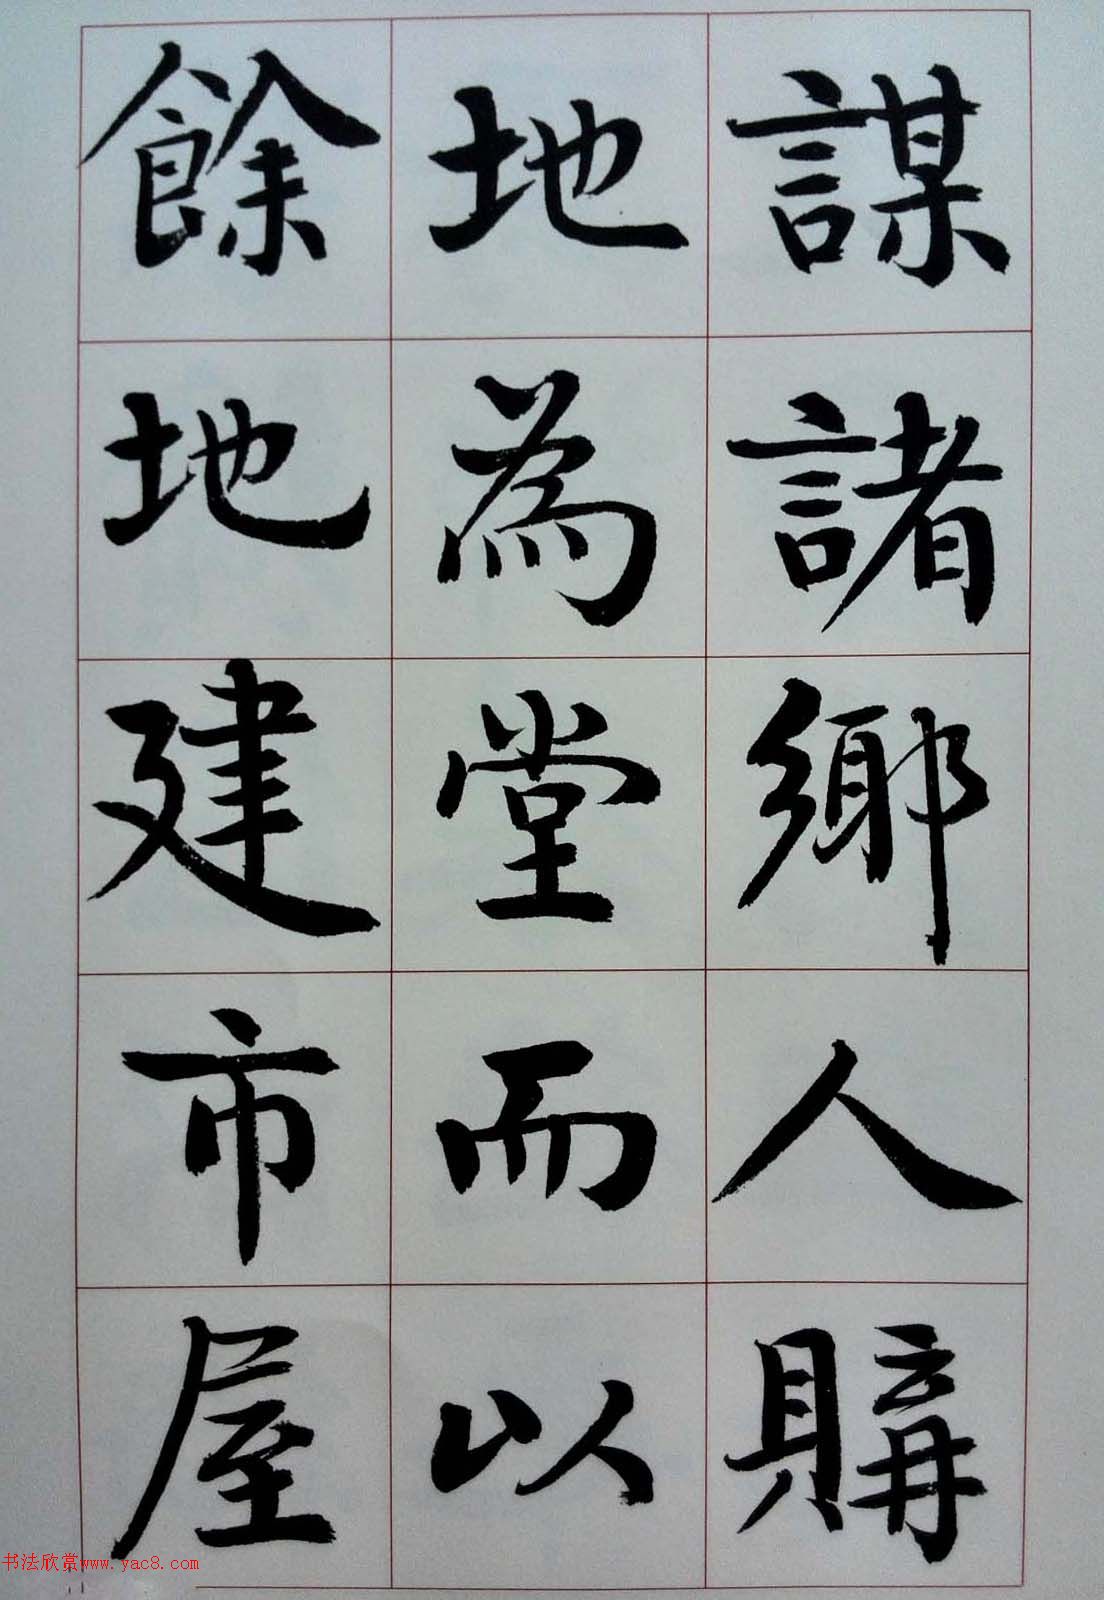 謀諸鄉人購
地為堂而以
餘地建市屋
书法欣赏www.yac8.com